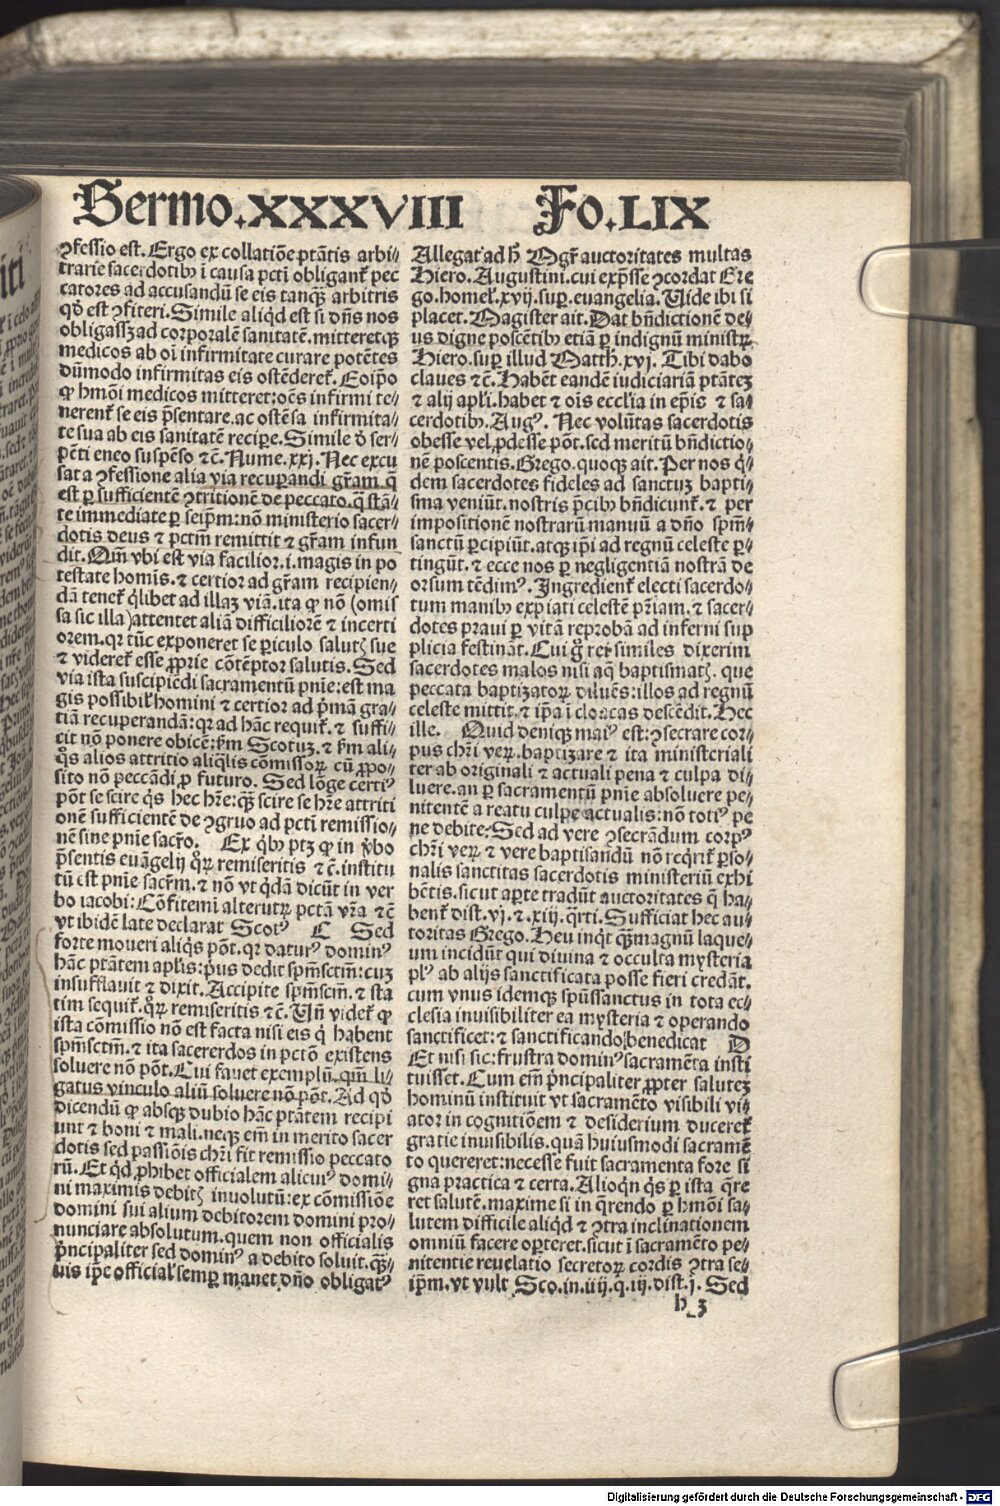 Sermo.XXXVIII Fo.LIX
ꝯfessio est. Ergo ex collatiōe ptātis arbi⸗
trarie sacerdotibꝰ ī causa pcti obligant̄ pec
catores ad accusandū se eis tanqꝫ arbitris
qd̄ est ꝯfiteri. Simile aliqd est si dn̄s nos
obligassꝫ ad corporalē sanitatē. mitteretqꝫ
medicos ab oī infirmitate curare potētes
dūmodo infirmitas eis ostēderet̄. Eoip̄o
ꝙ hmōi medicos mitteret: oēs infirmi te⸗
nerent̄ se eis p̄sentare. ac ostēsa infirmita⸗
te sua ab eis sanitatē recipe. Simile d̄ ser⸗
pēti eneo suspēso ⁊c̄. Nume.xxj. Nec excu
sat a ꝯfessione alia via recuperandi gr̄am q̄
est ꝑ sufficientē ꝯtritionē de peccato. q̄ stā⸗
te immediate ꝑ seip̄m: nō ministerio sacer⸗
dotis deus ⁊ pctm̄ remittit ⁊ gr̄am infun
dit. Qm̄ vbi est via facilior. i. magis in po
testate homīs. ⁊ certior ad gr̄am recipien⸗
dā tenet̄ qlibet ad illaꝫ viā. ita ꝙ nō (omis
sa sic illa) attentet aliā difficiliorē ⁊ incerti
orem. qr tūc exponeret se piculo salutꝭ sue
⁊ videret̄ esse ꝓprie cōtēptor salutis. Sed
via ista suscipiēdi sacramentū pnīe: est ma
gis possibil̄ homini ⁊ certior ad p̄mā gra⸗
tiā recuperandā: qr ad hāc requir̄. ⁊ suffi⸗
cit nō ponere obicē: km̄ Scotuꝫ. ⁊ km̄ ali⸗
qs alios attritio aliqlis cōmissoꝝ cū ꝓpo⸗
sito nō peccādi ꝓ futuro. Sed lōge certiꝰ
pōt se scire qs hec hr̄e: qꝫ scire se hr̄e attriti
onē sufficientē de ꝯgruo ad pcti remissio⸗
nē sine pnīe sacr̄o. Ex qbꝰ ptꝫ ꝙ in v̄bo
p̄sentis euāgelij qꝝ remiseritis ⁊c̄. institu
tū est pnīe sacr̄m. ⁊ nō vt qdā dicūt in ver
bo iacobi: Cōfitemi alterutrꝝ pctā vr̄a ⁊c̄
vt ibidē late declarat Scotꝰ C Sed
forte moueri aliqs pōt. qr daturꝰ dominꝰ
hāc ptātem apl̄is: pꝰus dedit spm̄sctm̄: cuꝫ
insufflauit ⁊ dixit. Accipite spm̄scm̄. ⁊ sta
tim sequit̄. qꝝ remiseritis ⁊c̄. Vn̄ videt̄ ꝙ
ista cōmissio nō est facta nisi eis q habent
spm̄sctm̄. ⁊ ita sacererdos in pctō existens
soluere nō pōt. Cui fauet exemplū. qm̄ li⸗
gatus vinculo aliū soluere nō pōt. Ad qd̄
dicendū ꝙ absqꝫ dubio hāc ptātem recipi
unt ⁊ boni ⁊ mali. neqꝫ em̄ in merito sacer
dotis sed passiōis chr̄i fit remissio peccato
rū. Et qd ꝓhibet officialem alicuiꝰ domi⸗
ni maximis debitꝭ inuolutū: ex cōmissiōe
domini sui alium debitorem domini pro⸗
nunciare absolutum. quem non officialis
p̄ncipaliter sed dominꝰ a debito soluit. qꝫ⸗
uis ip̄e official̄ semꝑ manet dn̄o obligatꝰ
Allegat ad h̄ Mgr̄ auctoritates multas
Hiero. Augustini. cui exp̄sse ꝯcordat Gre
go. homel̄.xvij. suꝑ. euangelia. Vide ibi si
placet. Magister ait. Dat bn̄dictionē de⸗
us digne poscētibꝰ etiā ꝑ indignū ministꝝ.
Hiero. suꝑ illud Matth.xvj. Tibi dabo
claues ⁊c̄. Habēt eandē iudiciariā ptātēꝫ
⁊ alij apl̄i. habet ⁊ oīs eccl̄ia in ep̄is ⁊ sa⸗
cerdotibꝰ. Augꝰ. Nec volūtas sacerdotis
obesse vel ꝓdesse pōt. sed meritū bn̄dictio⸗
nē poscentis. Grego. quoqꝫ ait. Per nos q⸗
dem sacerdotes fideles ad sanctuꝫ bapti⸗
sma veniūt. nostris p̄cibꝰ bn̄dicunt̄. ⁊ per
impositionē nostrarū manuū a dn̄o spm̄⸗
sanctū ꝑcipiūt. atqꝫ ip̄i ad regnū celeste ꝑ⸗
tingūt. ⁊ ecce nos ꝑ negligentiā nostrā de
orsum tēdimꝰ. Ingredient̄ electi sacerdo⸗
tum manibꝰ expiati celestē pr̄iam. ⁊ sacer⸗
dotes praui ꝑ vitā reprobā ad inferni sup
plicia festināt. Cui g̊ rei similes dixerim
sacerdotes malos nisi aq̄ baptismatꝭ. que
peccata baptizatoꝝ diluēs: illos ad regnū
celeste mittit. ⁊ ip̄a ī cloacas descēdit. Hec
ille. Quid deniqꝫ maiꝰ est: ꝯsecrare cor⸗
pus chr̄i veꝝ. baptizare ⁊ ita ministeriali
ter ab originali ⁊ actuali pena ⁊ culpa di⸗
luere. an ꝑ sacramentū pnīe absoluere pe⸗
nitentē a reatu culpe actualis: nō totiꝰ pe
ne debite: Sed ad vere ꝯsecrādum corpꝰ
chr̄i veꝝ ⁊ vere baptisandū nō reqrit̄ ꝑso⸗
nalis sanctitas sacerdotis ministeriū exhi
bētis. sicut aꝑte tradūt auctoritates q̄ ha⸗
bent̄ dist.vj. ⁊.xiij. qrti. Sufficiat hec au⸗
toritas Grego. Heu inqt qꝫ magnū laque⸗
um incidūt qui diuina ⁊ occulta mysteria
plꝰ ab alijs sanctificata posse fieri credāt.
cum vnus idemqꝫ spūssanctus in tota ec⸗
clesia inuisibiliter ea mysteria ⁊ operando
sanctificet: ⁊ sanctificando benedicat D
Et nisi sic: frustra dominꝰ sacramēta insti
tuisset. Cum em̄ p̄ncipaliter ꝓpter saluteꝫ
hominū instituit vt sacramēto visibili vi⸗
ator in cognitiōem ⁊ desiderium duceret̄
gratie inuisibilis. quā huiusmodi sacramē
to quereret: necesse fuit sacramenta fore si
gna practica ⁊ certa. Alioqn qs ꝑ ista qre
ret salutē. maxime si in qrendo ꝑ hmōi sa⸗
lutem difficile aliqd ⁊ ꝯtra inclinationem
omniū facere oꝑteret. sicut ī sacramēto pe⸗
nitentie reuelatio secretoꝝ cordis ꝯtra se⸗
ip̄m. vt vult Sco.in.iiij.q.iij.dist.j. Sed
h 3
Digitalisierung gefördert durch die Deutsche Forschungsgemeinschaft - DFG